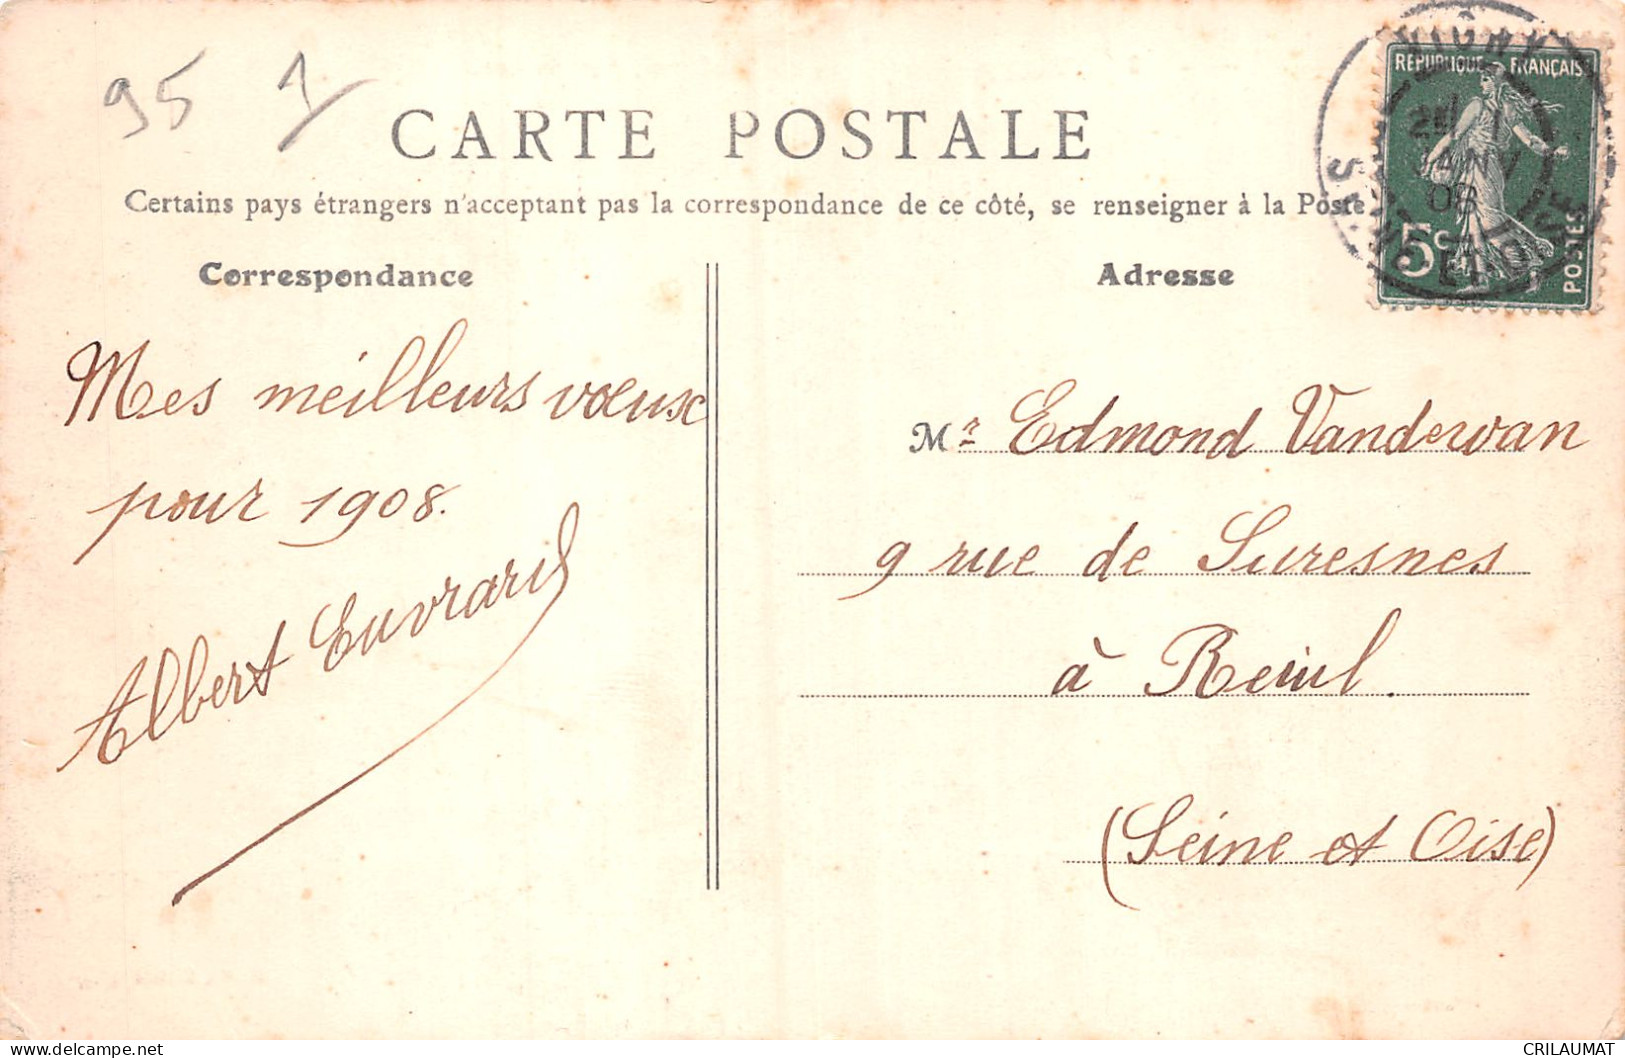 95 1
CARTE POSTALE
Certains pays étrangers n'acceptant pas la correspondance de ce côté, se renseigner à la Poste
Correspondance
Mes meilleurs vœux
pour 1908.
Albert Euvrard
Adresse
Mr Edmond Vandewan
9 rue de Suresnes
à Reuil.
(Seine et Oise)
REPUBLIQUE FRANÇAISE
5c
POSTES
08
ET-OISE
CRILAUMAT